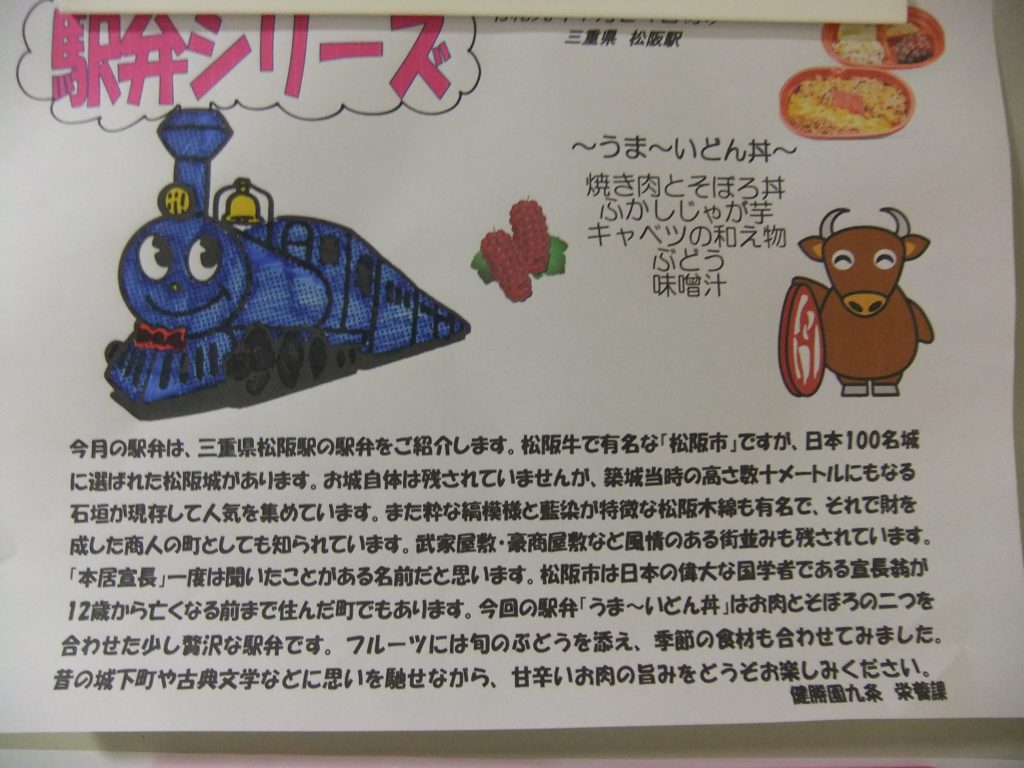 駅弁シリーズ
三重県 松阪駅
~うま~いどん丼~
焼き肉とそぼろ丼
ふかしじゃが芋
キャベツの和え物
ぶどう
味噌汁
今月の駅弁は、三重県松阪駅の駅弁をご紹介します。松阪牛で有名な「松阪市」ですが、日本100名城
に選ばれた松阪城があります。お城自体は残されていませんが、築城当時の高さ数十メートルにもなる
石垣が現存して人気を集めています。また粋な縞模様と藍染が特徴な松阪木綿も有名で、それで財を
成した商人の町としても知られています。武家屋敷・豪商屋敷など風情のある街並みも残されています。
「本居宣長」一度は聞いたことがある名前だと思います。松阪市は日本の偉大な国学者である宣長翁が
12歳から亡くなる前まで住んだ町でもあります。今回の駅弁「うま~いどん丼」はお肉とそぼろの二つを
合わせた少し贅沢な駅弁です。フルーツには旬のぶどうを添え、季節の食材も合わせてみました。
昔の城下町や古典文学などに思いを馳せながら、甘辛いお肉の旨みをどうぞお楽しみください。
健勝園九条 栄養課